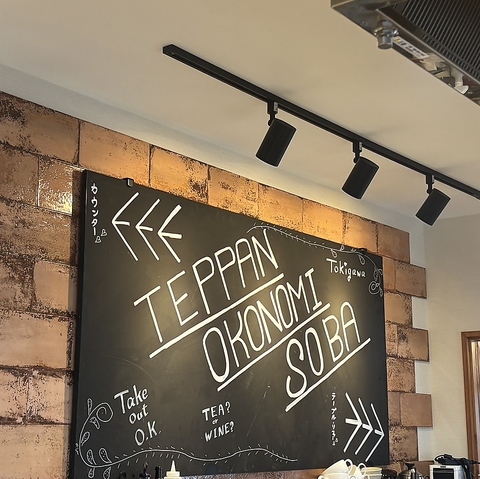 カウンター
TEPPAN
Tokigawa
OKONOMI
SOBA
Take
out
O.K.
TEA?
or
WINE?
テーブル・リスト